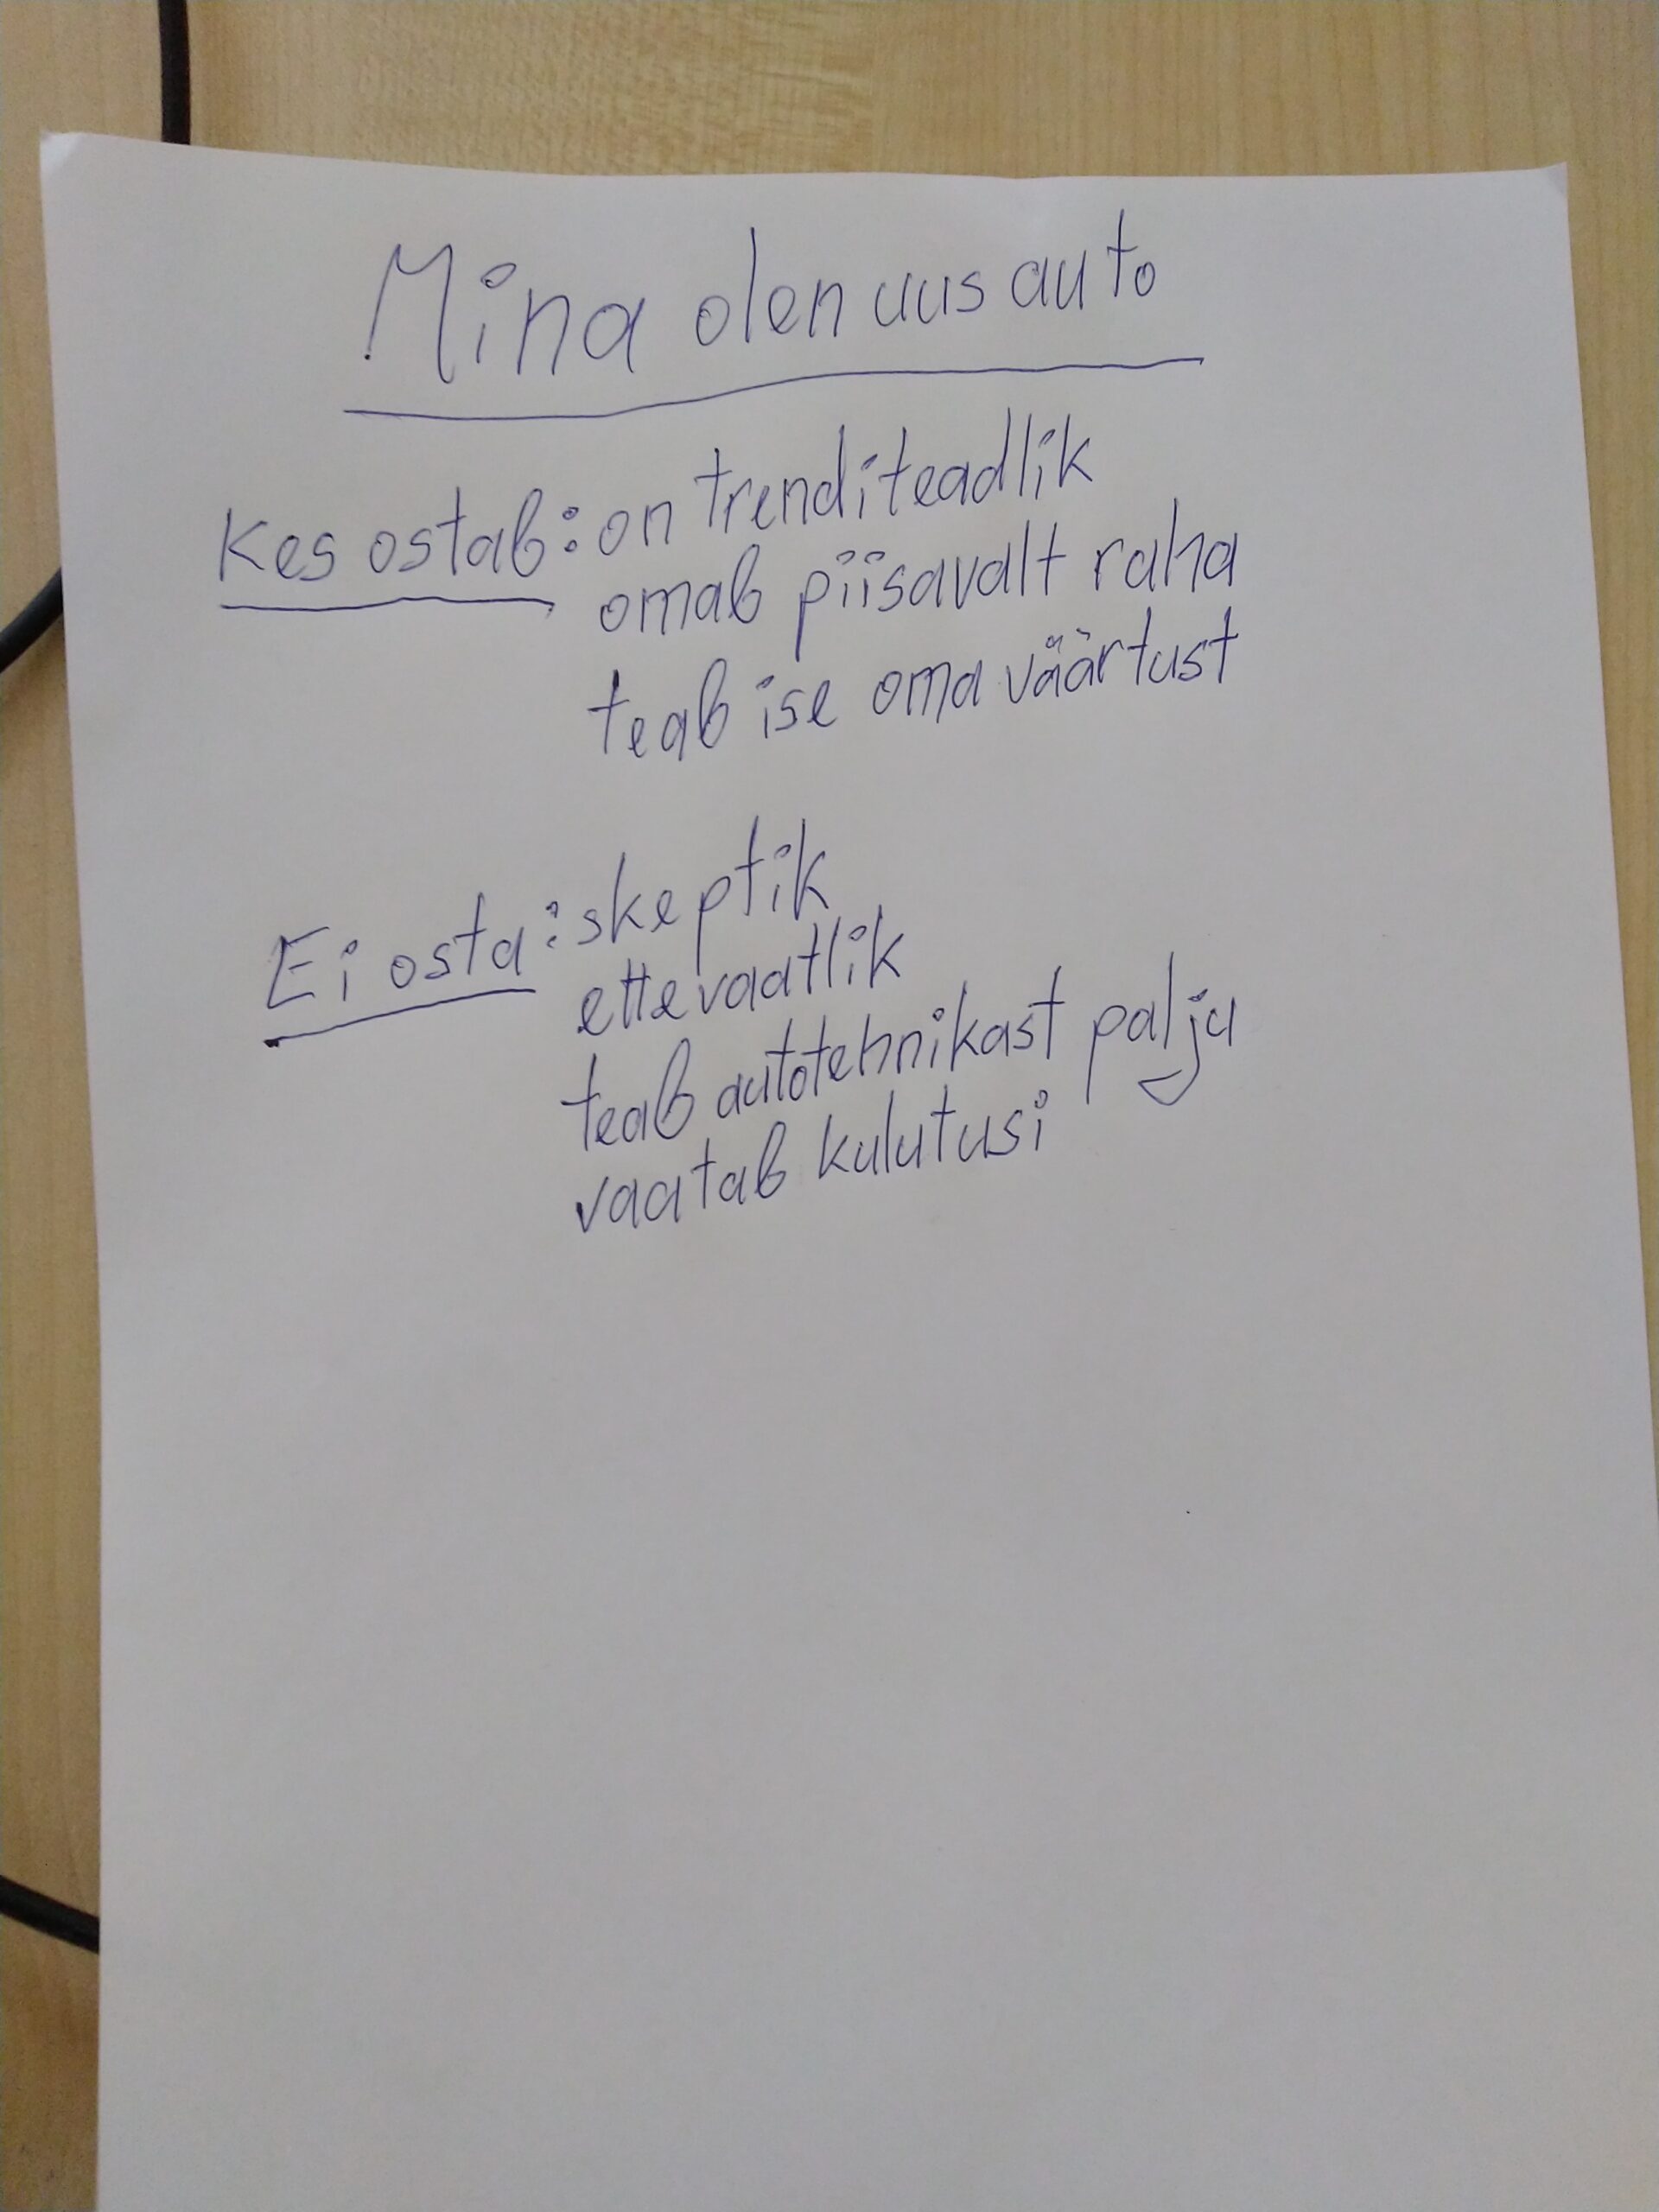 Mina olen uus auto
Kes ostab: on trenditeadlik
omab piisavalt raha
teab ise oma väärtust
Ei osta: skeptik
ettevaatlik
teab autotehnikast palju
vaatab kulutusi